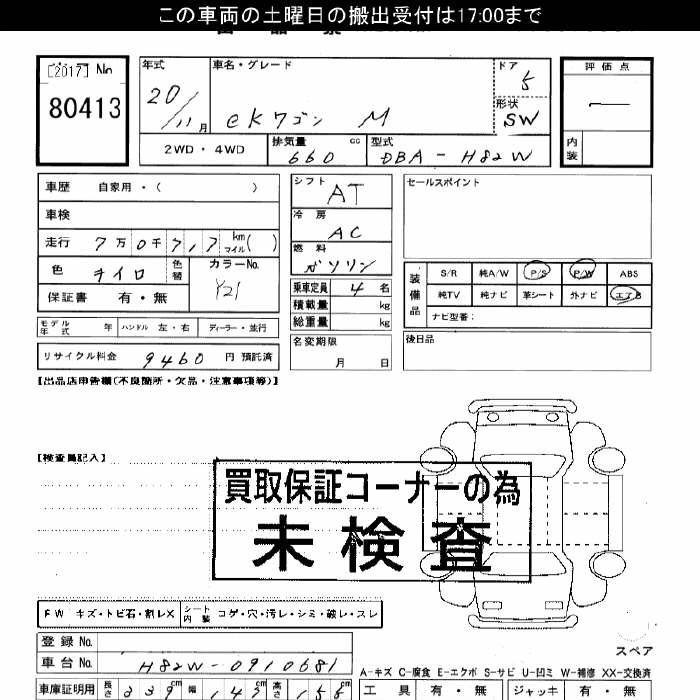 この車両の土曜日の搬出受付は17:00まで
[2017] No
80413
年式 車名・グレード ドア 評価点
20/11月 eKワゴン M 5
形状
SW
2WD・4WD 排気量 660 cc 型式 DBA-H82W 内装
車歴 自家用・( )
車検
走行 7万0千7,1,7 km マイル( )
色 チイロ 色替 カラーNo. Y21
保証書 有・無
シフト AT
冷房 AC
燃料 ガソリン
乗車定員 4名
積載量 kg
総重量 kg
名変期限
月 日
セールスポイント
装備品 S/R 純A/W P/S P/W ABS
純TV 純ナビ 革シート 外ナビ エアB
ナビ型番:
後日品
モデル年式 年 ハンドル 左・右 ディーラー・並行
リサイクル料金 9460 円 預託済
【出品店申告欄(不良箇所・欠品・注意事項等)】
【検査員記入】
買取保証コーナーの為
未検査
FW キズ・トビ石・割レX シート内装 コゲ・穴・汚レ・シミ・破レ・スレ
登録 No.
車台 No. H82W-0910681
スペア
A-キズ C-腐食 E-エクボ S-サビ U-凹ミ W-補修 XX-交換済
車庫証明用 長さ 339cm 幅 147cm 高さ 155
工具 有・無 ジャッキ 有・無